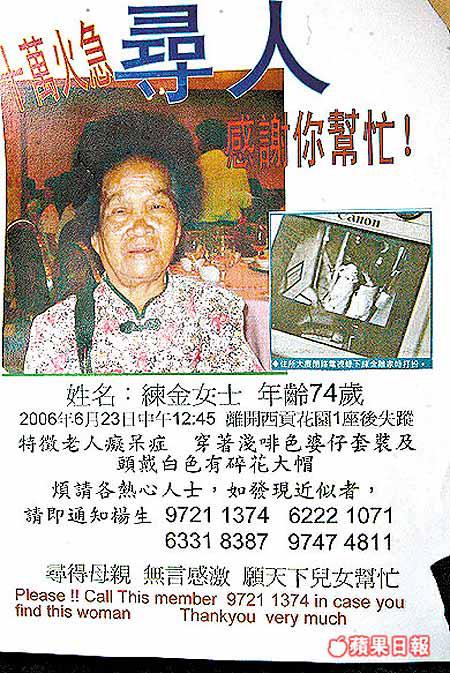 十萬火急
尋人
感謝你幫忙！
Canon
◆住所大廈閉路電視錄下練金離家時打扮。
姓名：練金女士 年齡74歲
2006年6月23日中午12:45 離開西貢花園1座後失蹤
特徵老人癡呆症 穿著淺啡色婆仔套裝及
頭戴白色有碎花大帽
煩請各熱心人士，如發現近似者，
請即通知楊生 9721 1374 6222 1071
6331 8387 9747 4811
尋得母親 無言感激 願天下兒女幫忙
Please !! Call This member 9721 1374 in case you
find this woman Thankyou very much
蘋果日報